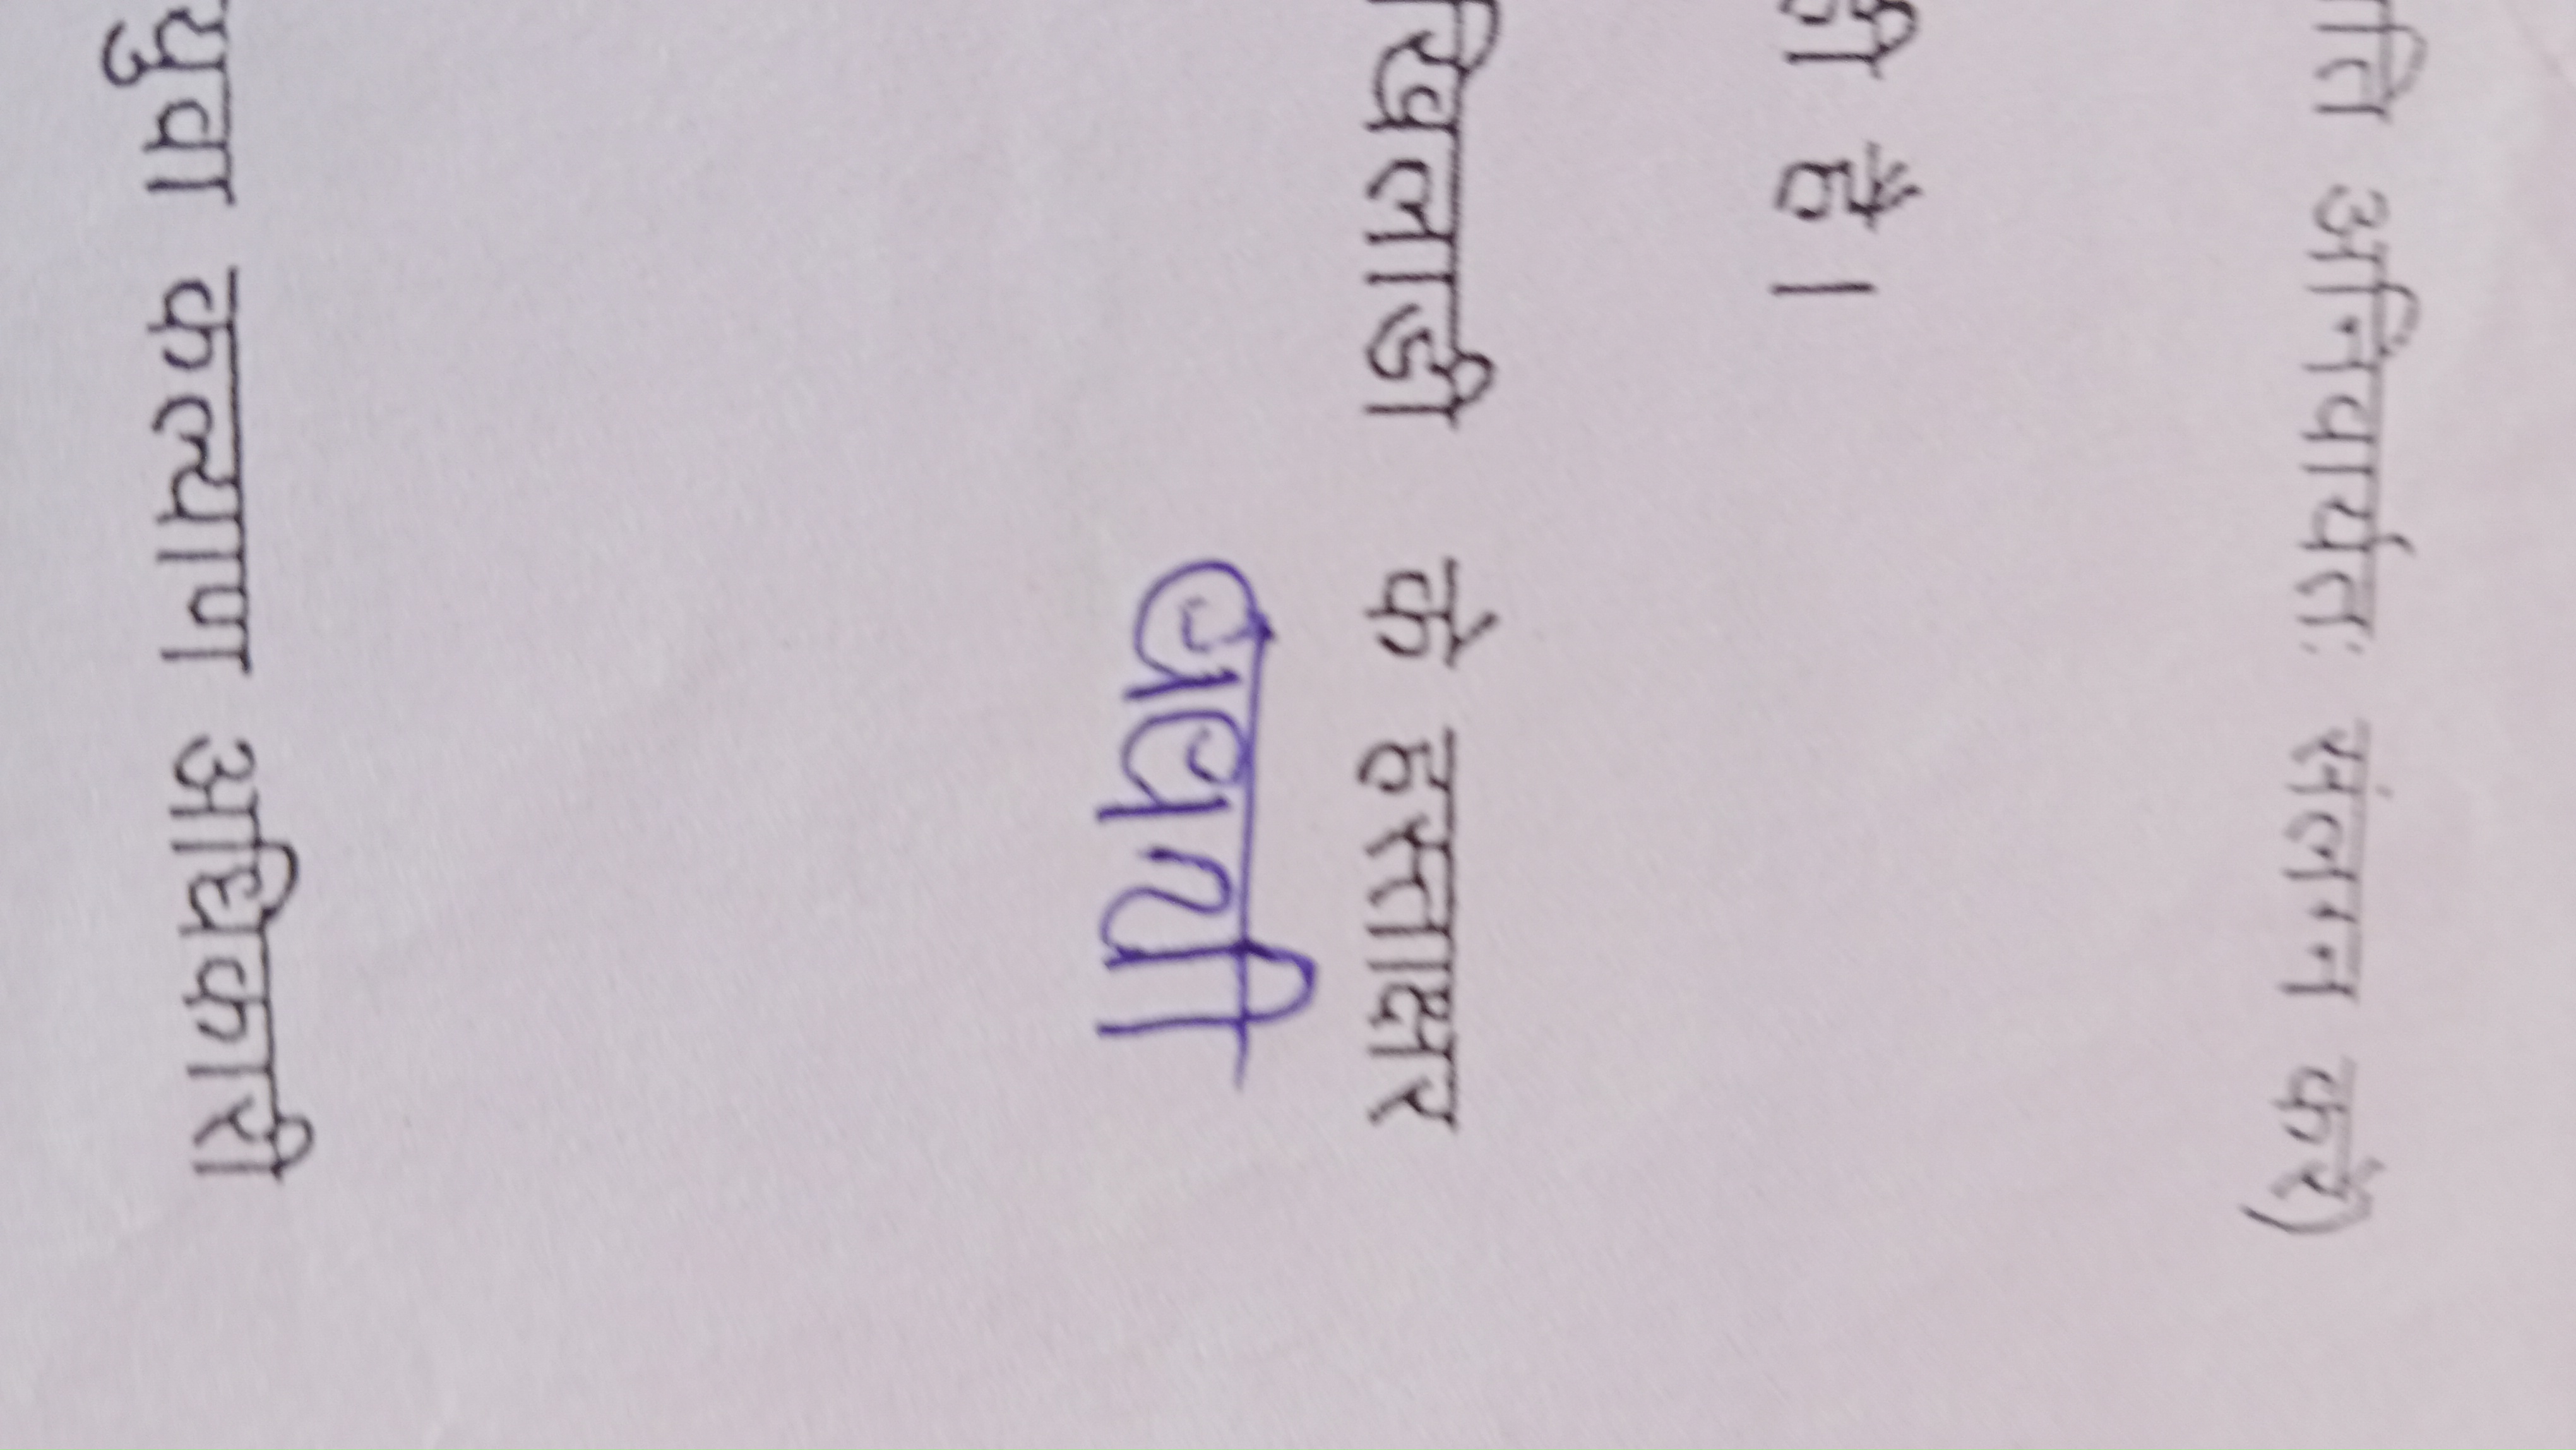 अनिवार्यतः संलग्न करें)
है।
खिलाडी के हस्ताक्षर
युवा कल्याण अधिकारी